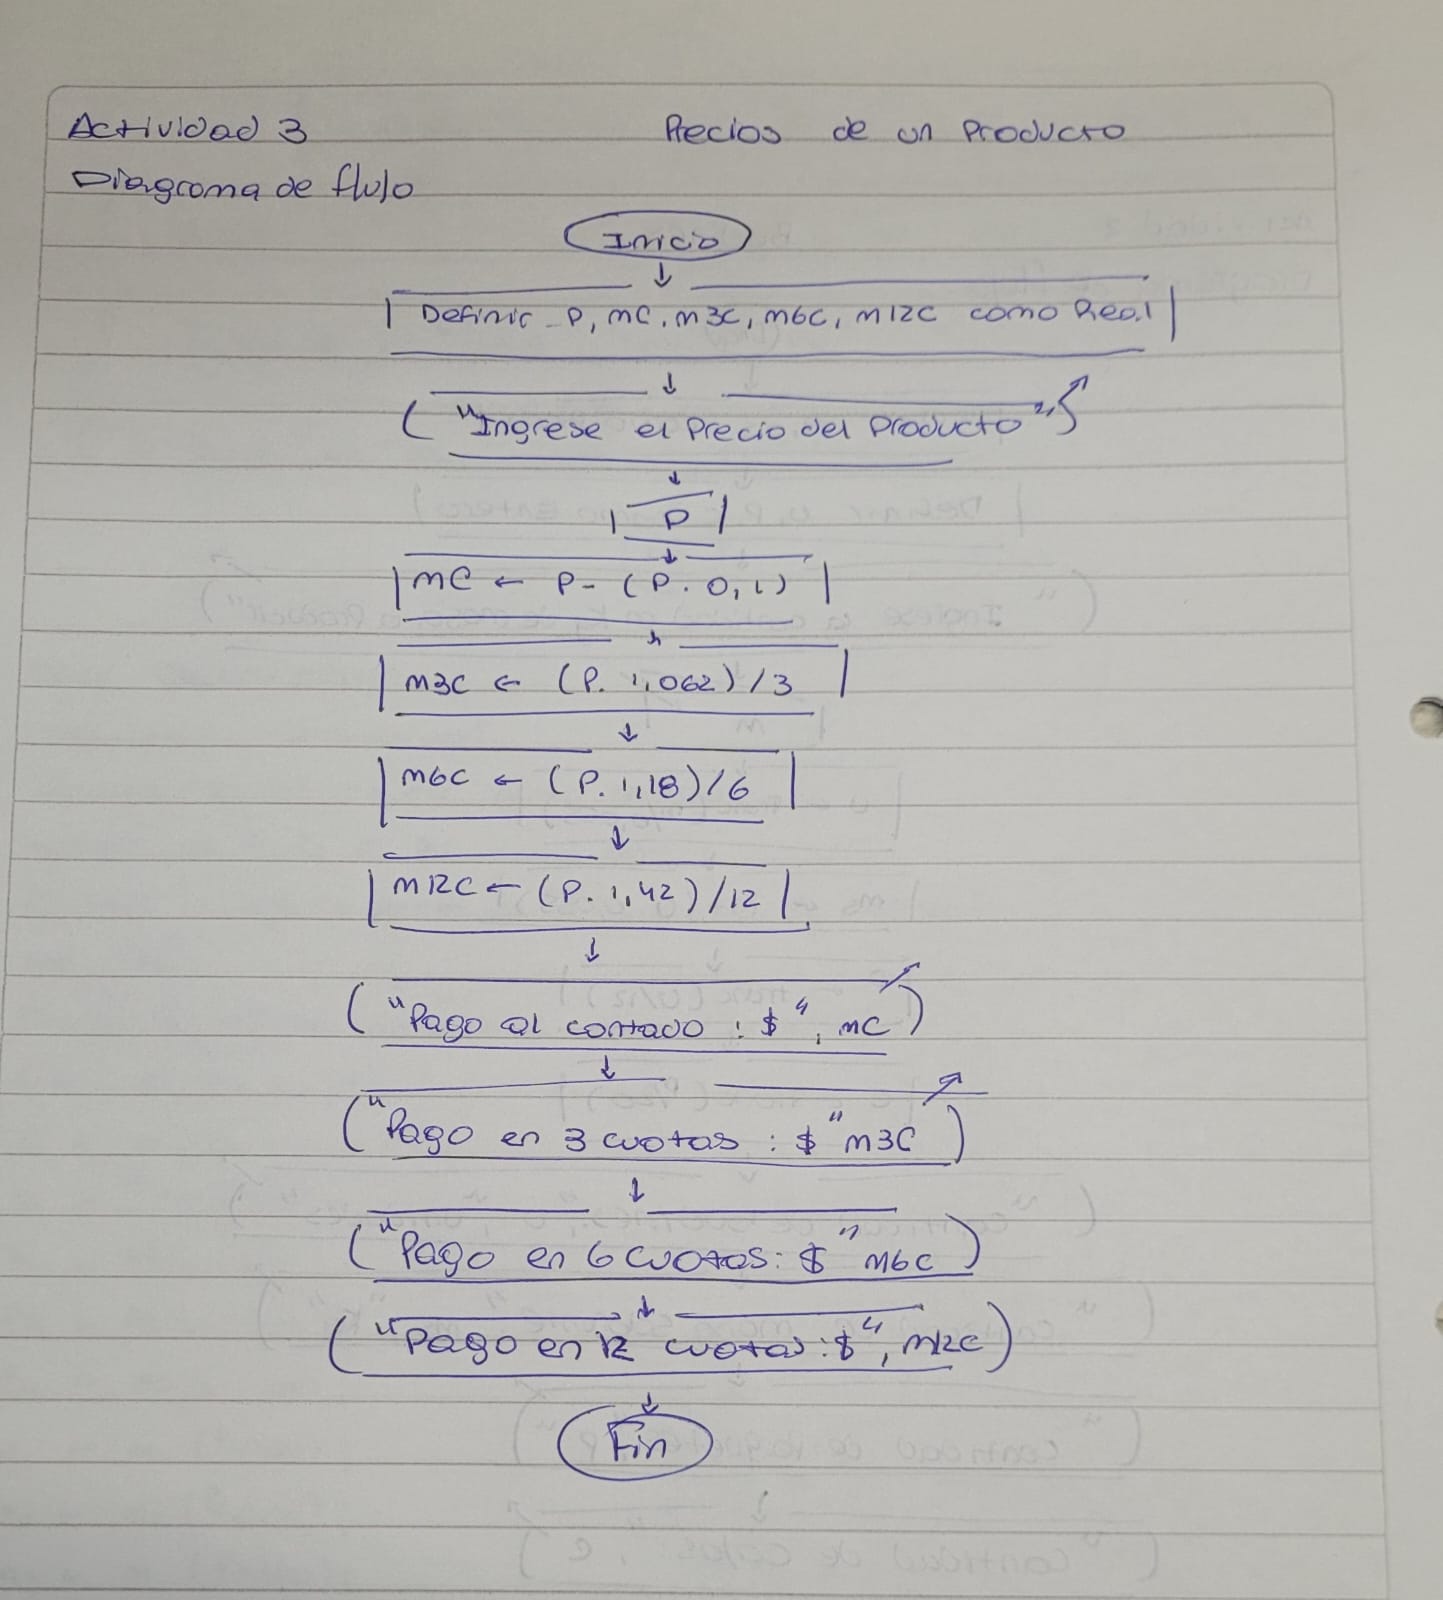 Actividad 3
Precios de un Producto
Diagrama de flujo
Inicio
Definir P, mC, m3C, m6C, m12C como Real
"Ingrese el Precio del Producto"
P
mC ← P - (P. 0,1)
m3C ← (P. 1,062) / 3
m6C ← (P. 1,18) / 6
m12C ← (P. 1,42) / 12
"Pago al contado : $", mC
"Pago en 3 cuotas : $" m3C
"Pago en 6 cuotas: $" m6C
"Pago en 12 cuotas : $", m12C
Fin